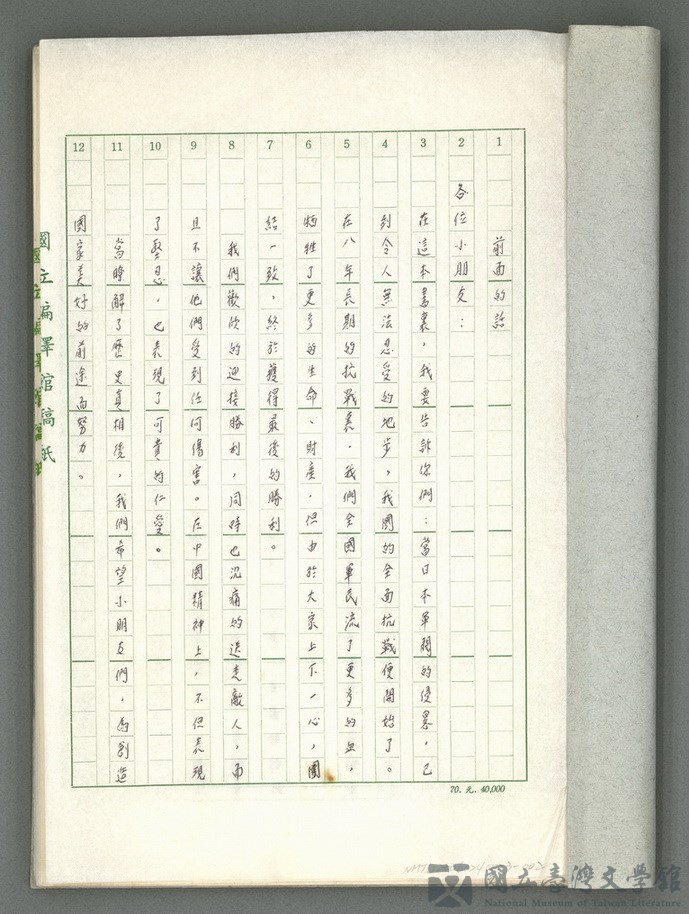 1 2 3 4 5 6 7 8 9 10 11 12
前面的話
各位小朋友：
在這本書裏，我要告訴你們：當日本軍閥的侵略，已
到令人無法忍受的地步，我國的全面抗戰便開始了。
在八年長期的抗戰裏，我們全國軍民流了更多的血，
犧牲了更多的生命、財產，但由於大家上下一心，團
結一致，終於獲得最後的勝利。
我們歡欣的迎接勝利，同時也沉痛的送走敵人，而
且不讓他們受到任何傷害。在中國精神上，不但表現
了堅忍，也表現了可貴的仁愛。
當時解了歷史真相後，我們希望小朋友們，為創造
國家美好的前途而努力。
國立編譯館稿紙
70.元.40,000
國立臺灣文學館
National Museum of Taiwan Literature